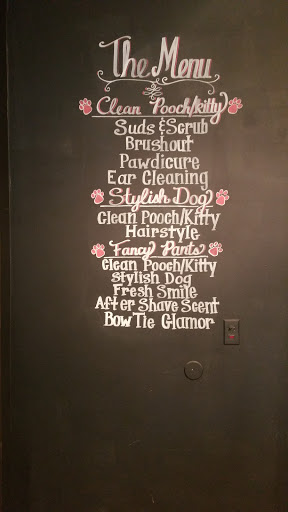 The Menu
Clean Pooch/kitty
Suds & Scrub
Brushout
Pawdicure
Ear Cleaning
Stylish Dog
Clean Pooch/Kitty
Hairstyle
Fancy Pants
Clean Pooch/Kitty
Stylish Dog
Fresh Smile
After Shave Scent
Bow Tie Glamor